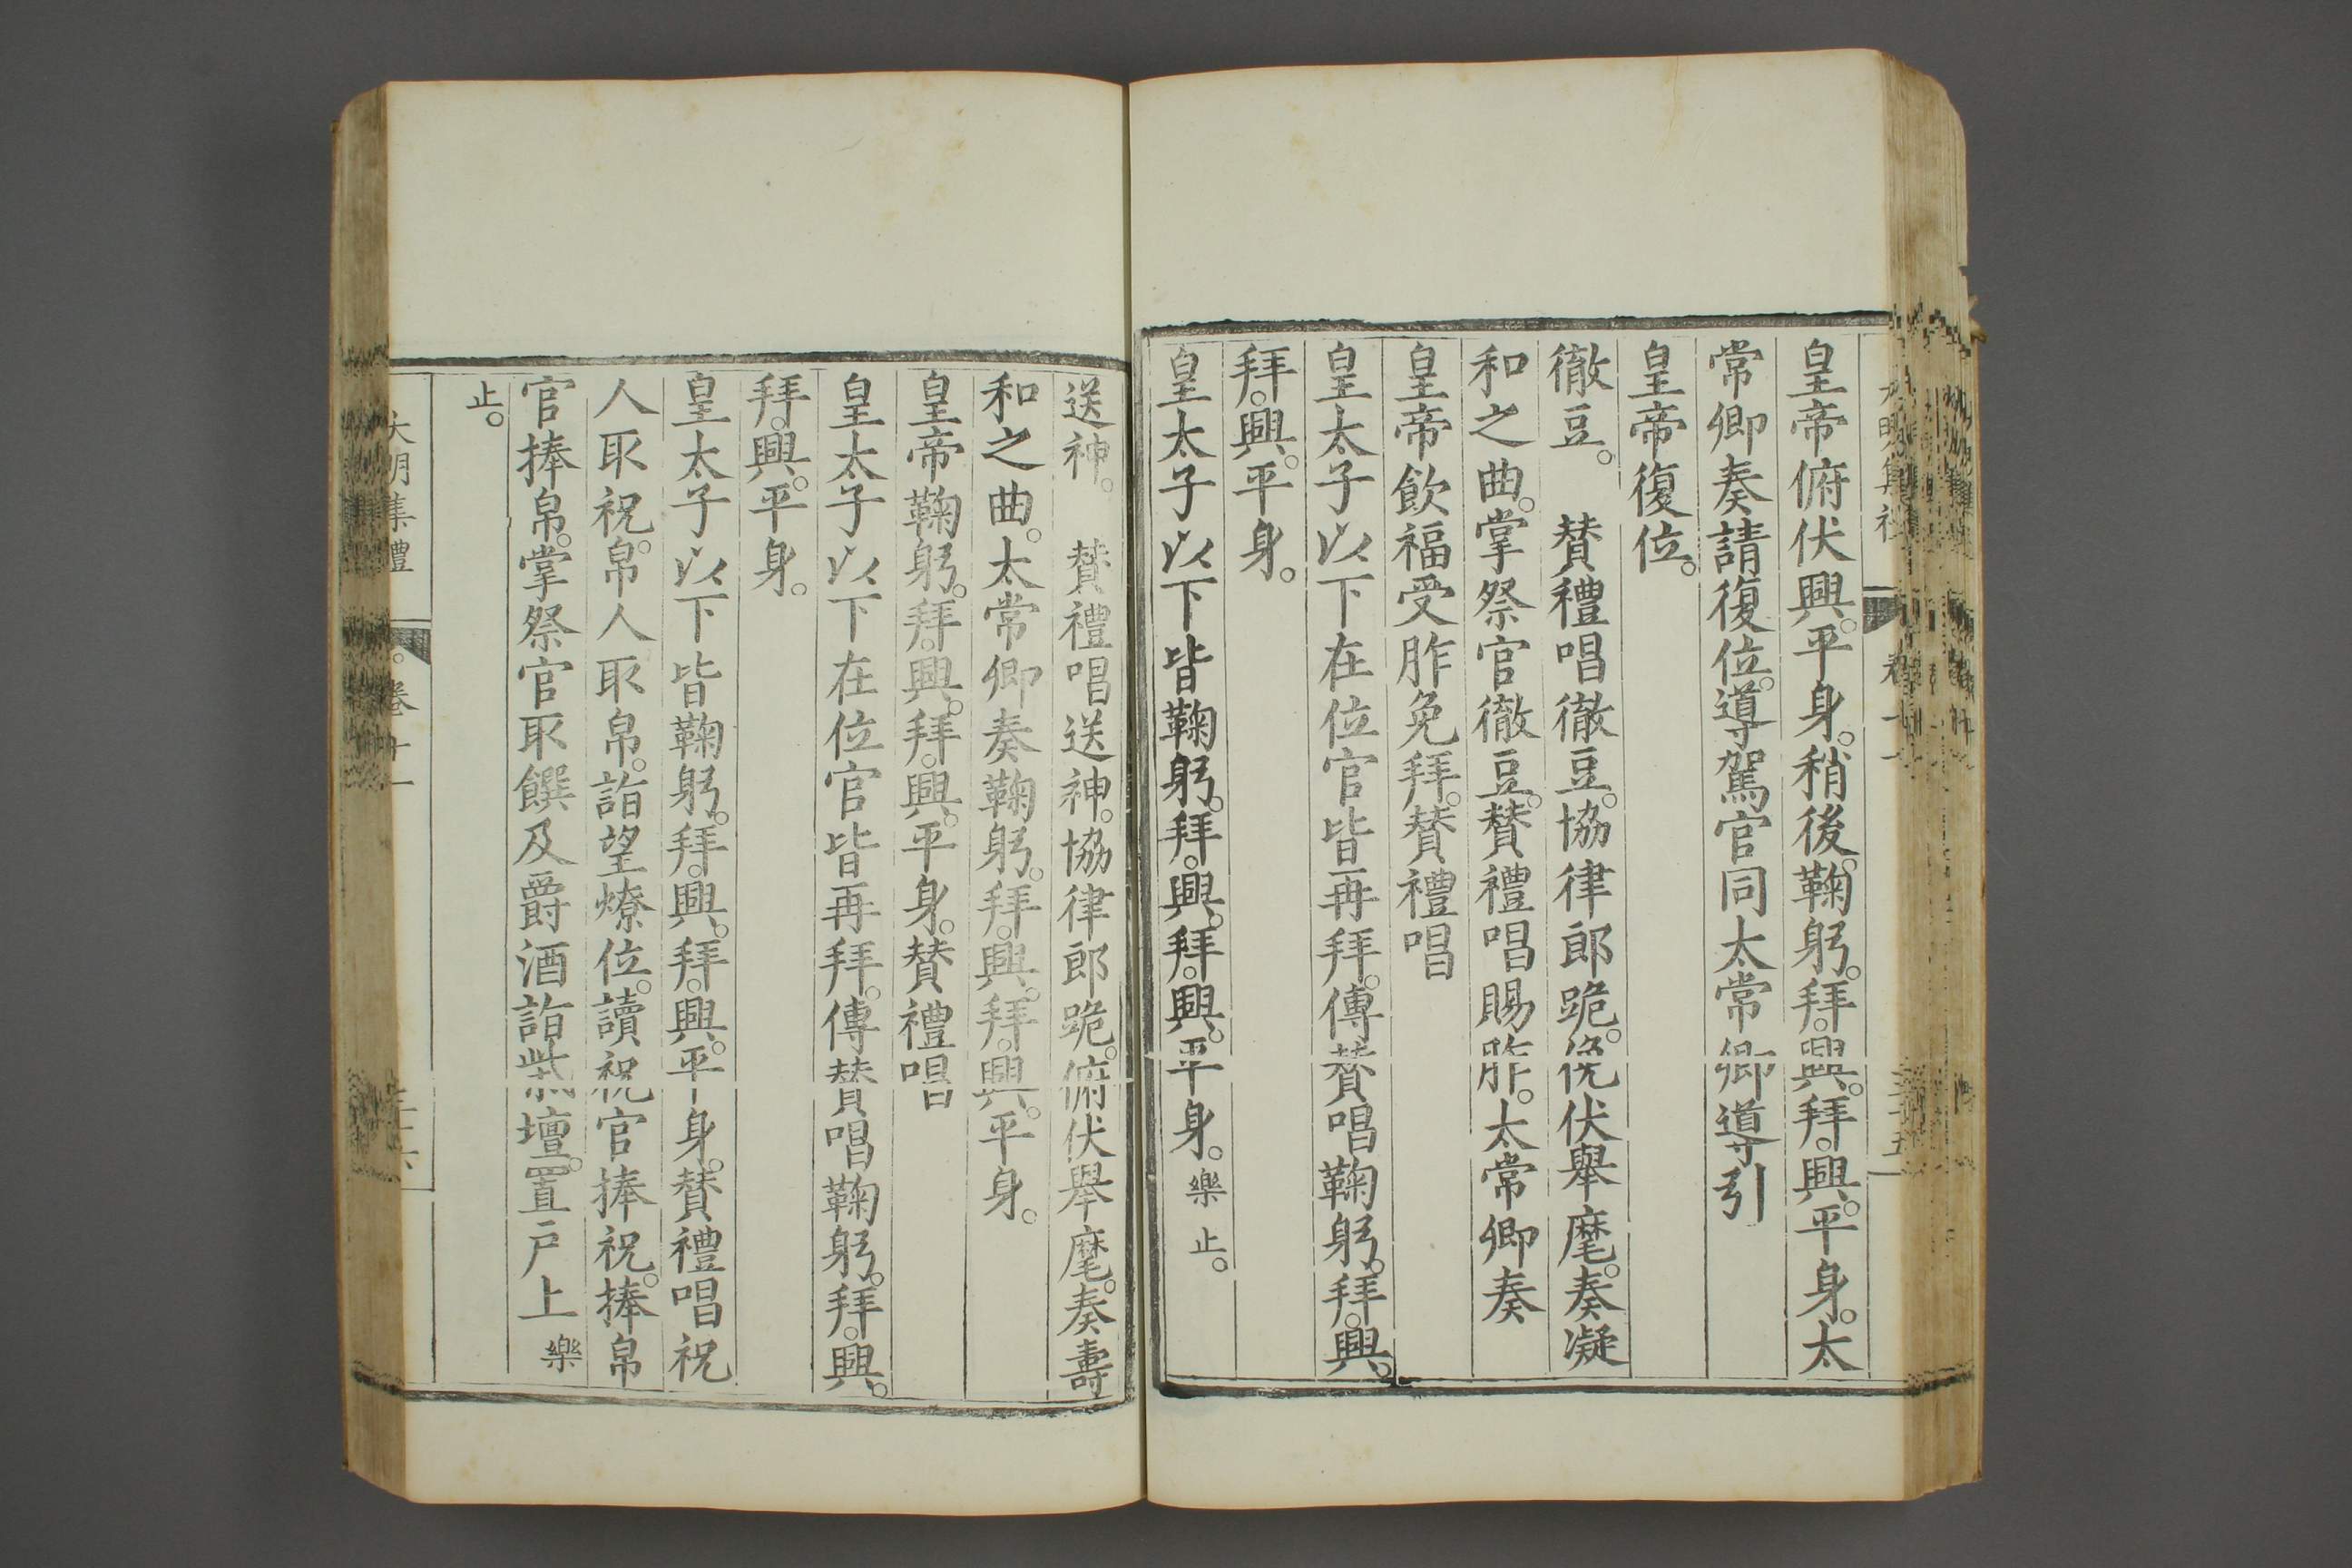 皇帝俯伏興。平身。稍後。鞠躬。拜。興。拜。興。平身。太
常卿奏請復位。導駕官同太常卿導引
皇帝復位。
徹豆。　贊禮唱徹豆。協律郎跪。俛伏舉麾。奏凝
和之曲。掌祭官徹豆。贊禮唱賜胙。太常卿奏
皇帝飲福受胙免拜。贊禮唱
皇太子以下在位官皆再拜。傳贊唱鞠躬。拜。興。
拜。興。平身。
皇太子以下皆鞠躬。拜。興。拜。興。平身。樂止。
送神。　贊禮唱送神。協律郎跪。俯伏舉麾。奏壽
和之曲。太常卿奏鞠躬。拜。興。拜。興。平身。
皇帝鞠躬。拜。興。拜。興。平身。贊禮唱
皇太子以下在位官皆再拜。傳贊唱鞠躬。拜。興。
拜。興。平身。
皇太子以下皆鞠躬。拜。興。拜。興。平身。贊禮唱祝
人取祝。帛人取帛。詣望燎位。讀祝官捧祝。捧帛
官捧帛。掌祭官取饌及爵酒詣柴壇。置戶上樂
止。
大明集禮　卷十一